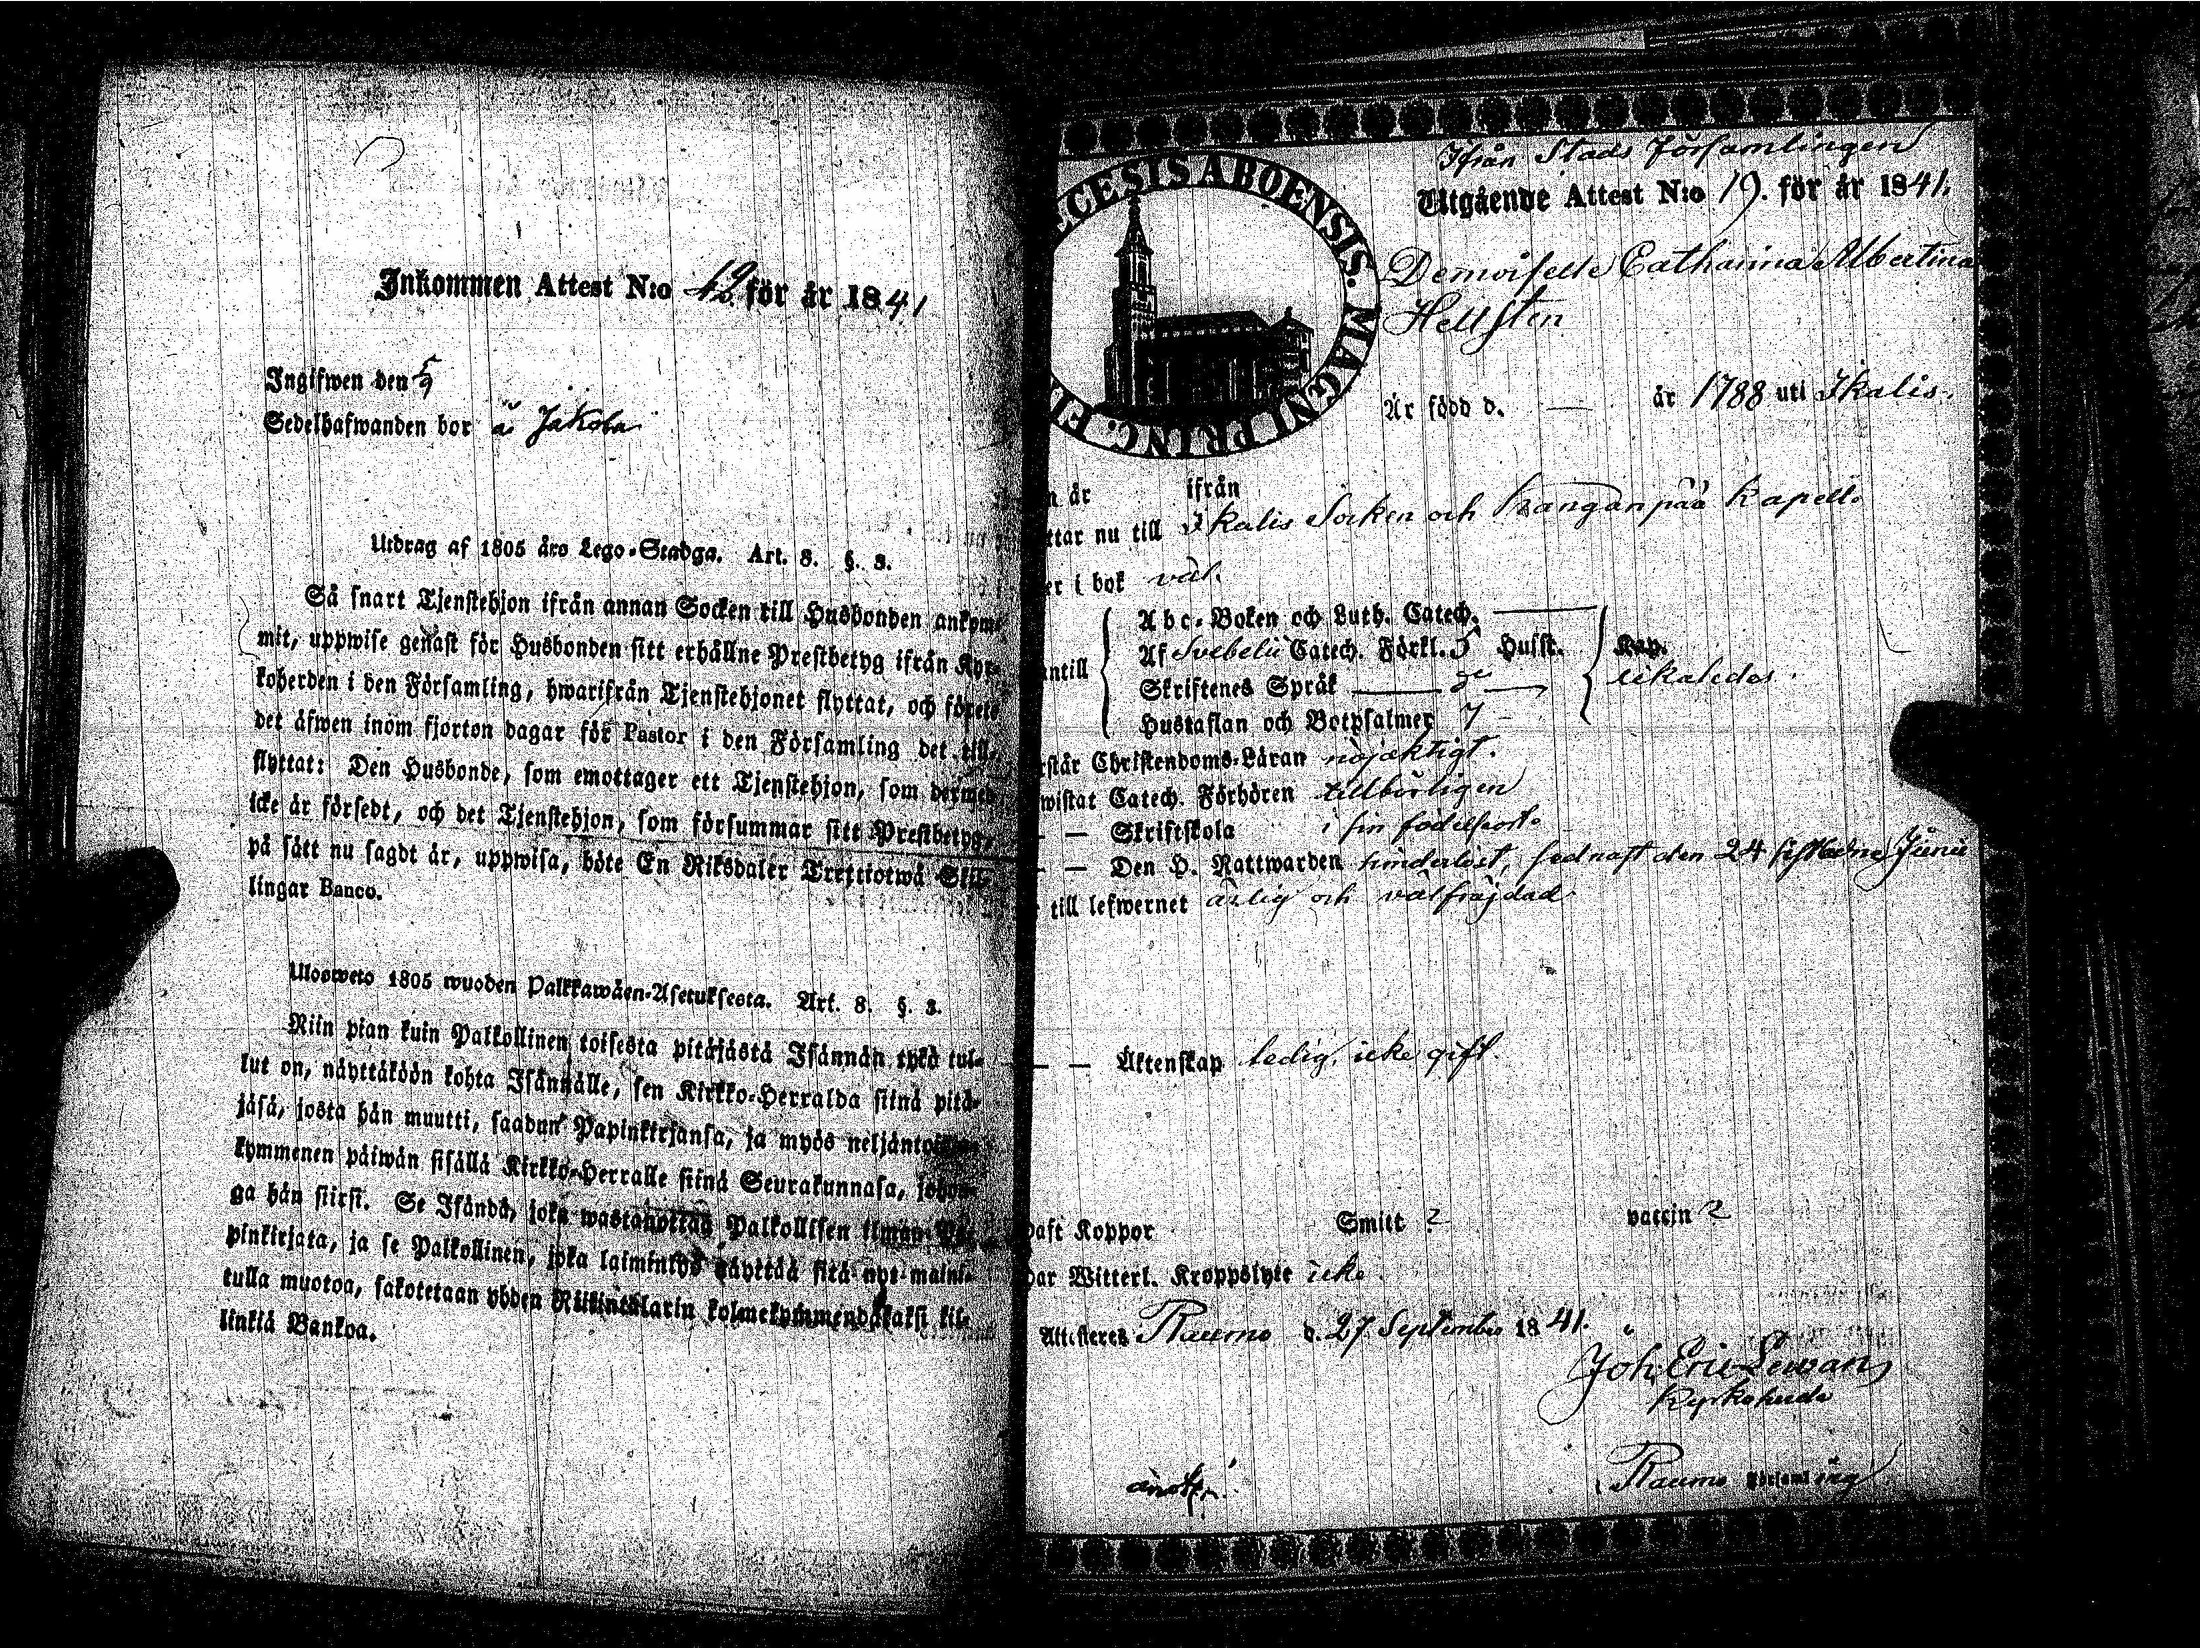 Inkommen Attest N:o för år 1841
Ingifwen den 5/9
Sedelhafwanden bor å Jakola
Utdrag af 1805 års Lego-Stadga. Art. 8. §. 3.
Så snart Tjenstehjon ifrån annan Socken till Husbonden ankom-
mit, uppwise genast för Husbonden sitt erhållne Prestbetyg ifrån Kyr-
koherden i den Församling, hwarifrån Tjenstehjonet flyttat, och förete
det äfwen inom fjorton dagar för Pastor i den Församling det till-
flyttat: Den Husbonde, som emottager ett Tjenstehjon, som dermed
icke är försedt, och det Tjenstehjon, som försummar sitt Prestbetyg,
på sätt nu sagdt är, uppwisa, böte En Riksdaler Trettiotwå Skil-
lingar Banco.
Ulosweto 1805 wuoden Palkkawäen-Asetuksesta. Art. 8. §. 3.
Niin pian kuin Palkollinen toisesta pitäjästä Isännän tykö tul-
lut on, näyttäköön kohta Isännälle, sen Kirkko-Herralda siinä pitä-
jäsä, josta hän muutti, saadun Papinkirjansa, ja myös neljäntoista-
kymmenen päiwän sisällä Kirkko-Herralle siinä Seurakunnasa, johon-
ga hän siirsi. Se Isändä, joka wastanottaa Palkollisen ilman Pa-
pinkirjata, ja se Palkollinen, joka laiminlyö näyttää sitä nyt maini-
tulla muotoa, sakotetaan yhden Riikintalarin kolmekymmendäkaksi kil-
linkiä Bankoa.
ECESIS ABOENSIS. MAGNI PRINC. FI
Ifrån Stads Församlingen
Utgående Attest N:o 19. för år 1841.
Demoiselle Catharina Albertina
Hellsten
Är född d. — år 1788 uti Ikalis.
n år ifrån
ttar nu till Ikalis Socken och Kanganpää Kapell.
er i bok väl.
Abc-Boken och Luth. Catech. —
antill Af Svebelii Catech. Förkl. 5 Husst. Kap.
Skriftenes Språk — — ickaledes.
Hustaflan och Botpsalmer 7 -
rstår Christendoms-Läran nöjaktigt.
wistat Catech. Förhören tillbörligen
— — Skriftskola i sin födelseort.
— — Den H. Nattwarden hinderlöst, sednast den 24 sistledne Junii
till lefwernet ärlig och välfräjdad
— — Äktenskap ledig, icke gift.
haft Koppor Smitt 2 vaccin 2
har Witterl. Kroppslyte icke.
Attesteres Raumo d. 27 September 1841.
Joh. Eric Lewan
Kyrkoherde
Raumo Församling